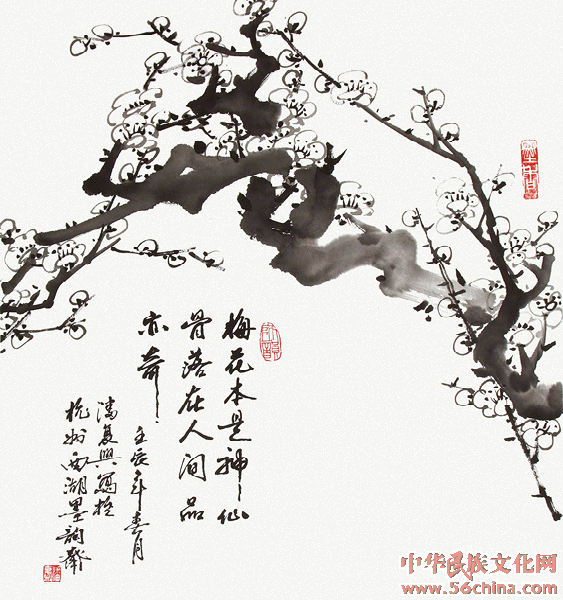 梅花本是神仙
骨落在人间品
亦奇
壬辰年春月
潘复兴写于
杭州西湖墨韵斋
中华民族文化网
www.56china.com